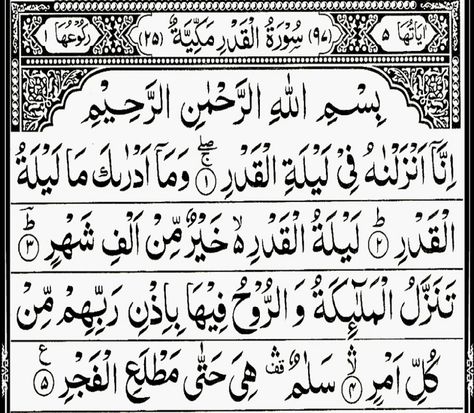 اٰيَاتُهَا ٥ (٩٧) سُوْرَةُ الْقَدْرِ مَكِّيَّةٌ (٢٥) رُكُوْعُهَا ١
بِسْمِ اللهِ الرَّحْمٰنِ الرَّحِيْمِ
اِنَّاۤ اَنْزَلْنٰهُ فِيْ لَيْلَةِ الْقَدْرِ ۚۖ ١ وَمَاۤ اَدْرٰىكَ مَا لَيْلَةُ
الْقَدْرِ ؕ ٢ لَيْلَةُ الْقَدْرِ ۙ۬ خَيْرٌ مِّنْ اَلْفِ شَهْرٍ ؕ ٣
تَنَزَّلُ الْمَلٰٓئِكَةُ وَ الرُّوْحُ فِيْهَا بِاِذْنِ رَبِّهِمْ مِّنْ
كُلِّ اَمْرٍ ۙۛ ٤ سَلٰمٌ ۛ قف هِيَ حَتّٰى مَطْلَعِ الْفَجْرِ ٥ ع